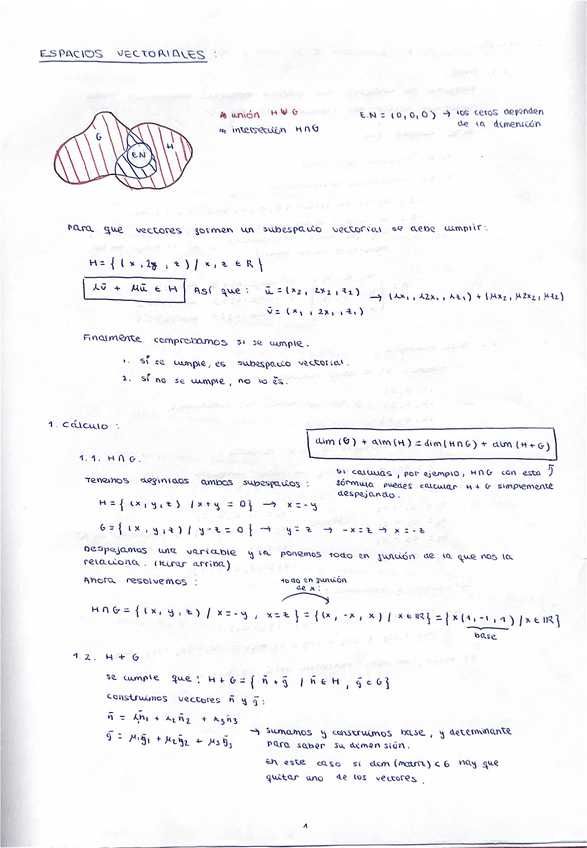 ESPACIOS VECTORIALES :
G
H
E.N
* unión H ∪ G
* intersección H∩G
E.N = (0,0,0) → los ceros dependen
de la dimensión
Para que vectores formen un subespacio vectorial se debe cumplir:
H = { (x, 2y, z) / x, z ∈ R }
λv̄ + μū ∈ H
Así que : ū = (x2, 2x2, z2)
→ (λx1, λ2x1, λz1) + (μx2, μ2x2, μz2)
v̄ = (x1, 2x1, z1)
Finalmente comprobamos si se cumple.
1. Sí se cumple, es subespacio vectorial.
2. Sí no se cumple, no lo es.
1. Cálculo :
dim (G) + dim (H) = dim (H∩G) + dim (H+G)
1.1. H∩G.
Si calculas, por ejemplo, H∩G con esta
fórmula puedes calcular H+G simplemente
despejando.
Tenemos definidos ambos subespacios :
H = { (x, y, z) / x+y = 0 } → x = -y
G = { (x, y, z) / y-z = 0 } → y = z → -x = z → x = -z
Despejamos una variable y la ponemos todo en función de la que nos la
relaciona. (Mirar arriba)
Ahora resolvemos :
todo en función
de x :
H∩G = { (x, y, z) / x = -y, x = z } = { (x, -x, x) / x ∈ R } = { x(1, -1, 1) / x ∈ R }
base
1.2. H + G
Se cumple que : H+G = { h̄ + ḡ / h̄ ∈ H, ḡ ∈ G }
Construimos vectores h̄ y ḡ :
h̄ = λ1h̄1 + λ2h̄2 + λ3h̄3
ḡ = μ1ḡ1 + μ2ḡ2 + μ3ḡ3
→ Sumamos y construimos base, y determinante
para saber su dimensión.
En este caso si dim (matriz) < 6 hay que
quitar uno de los vectores.
1